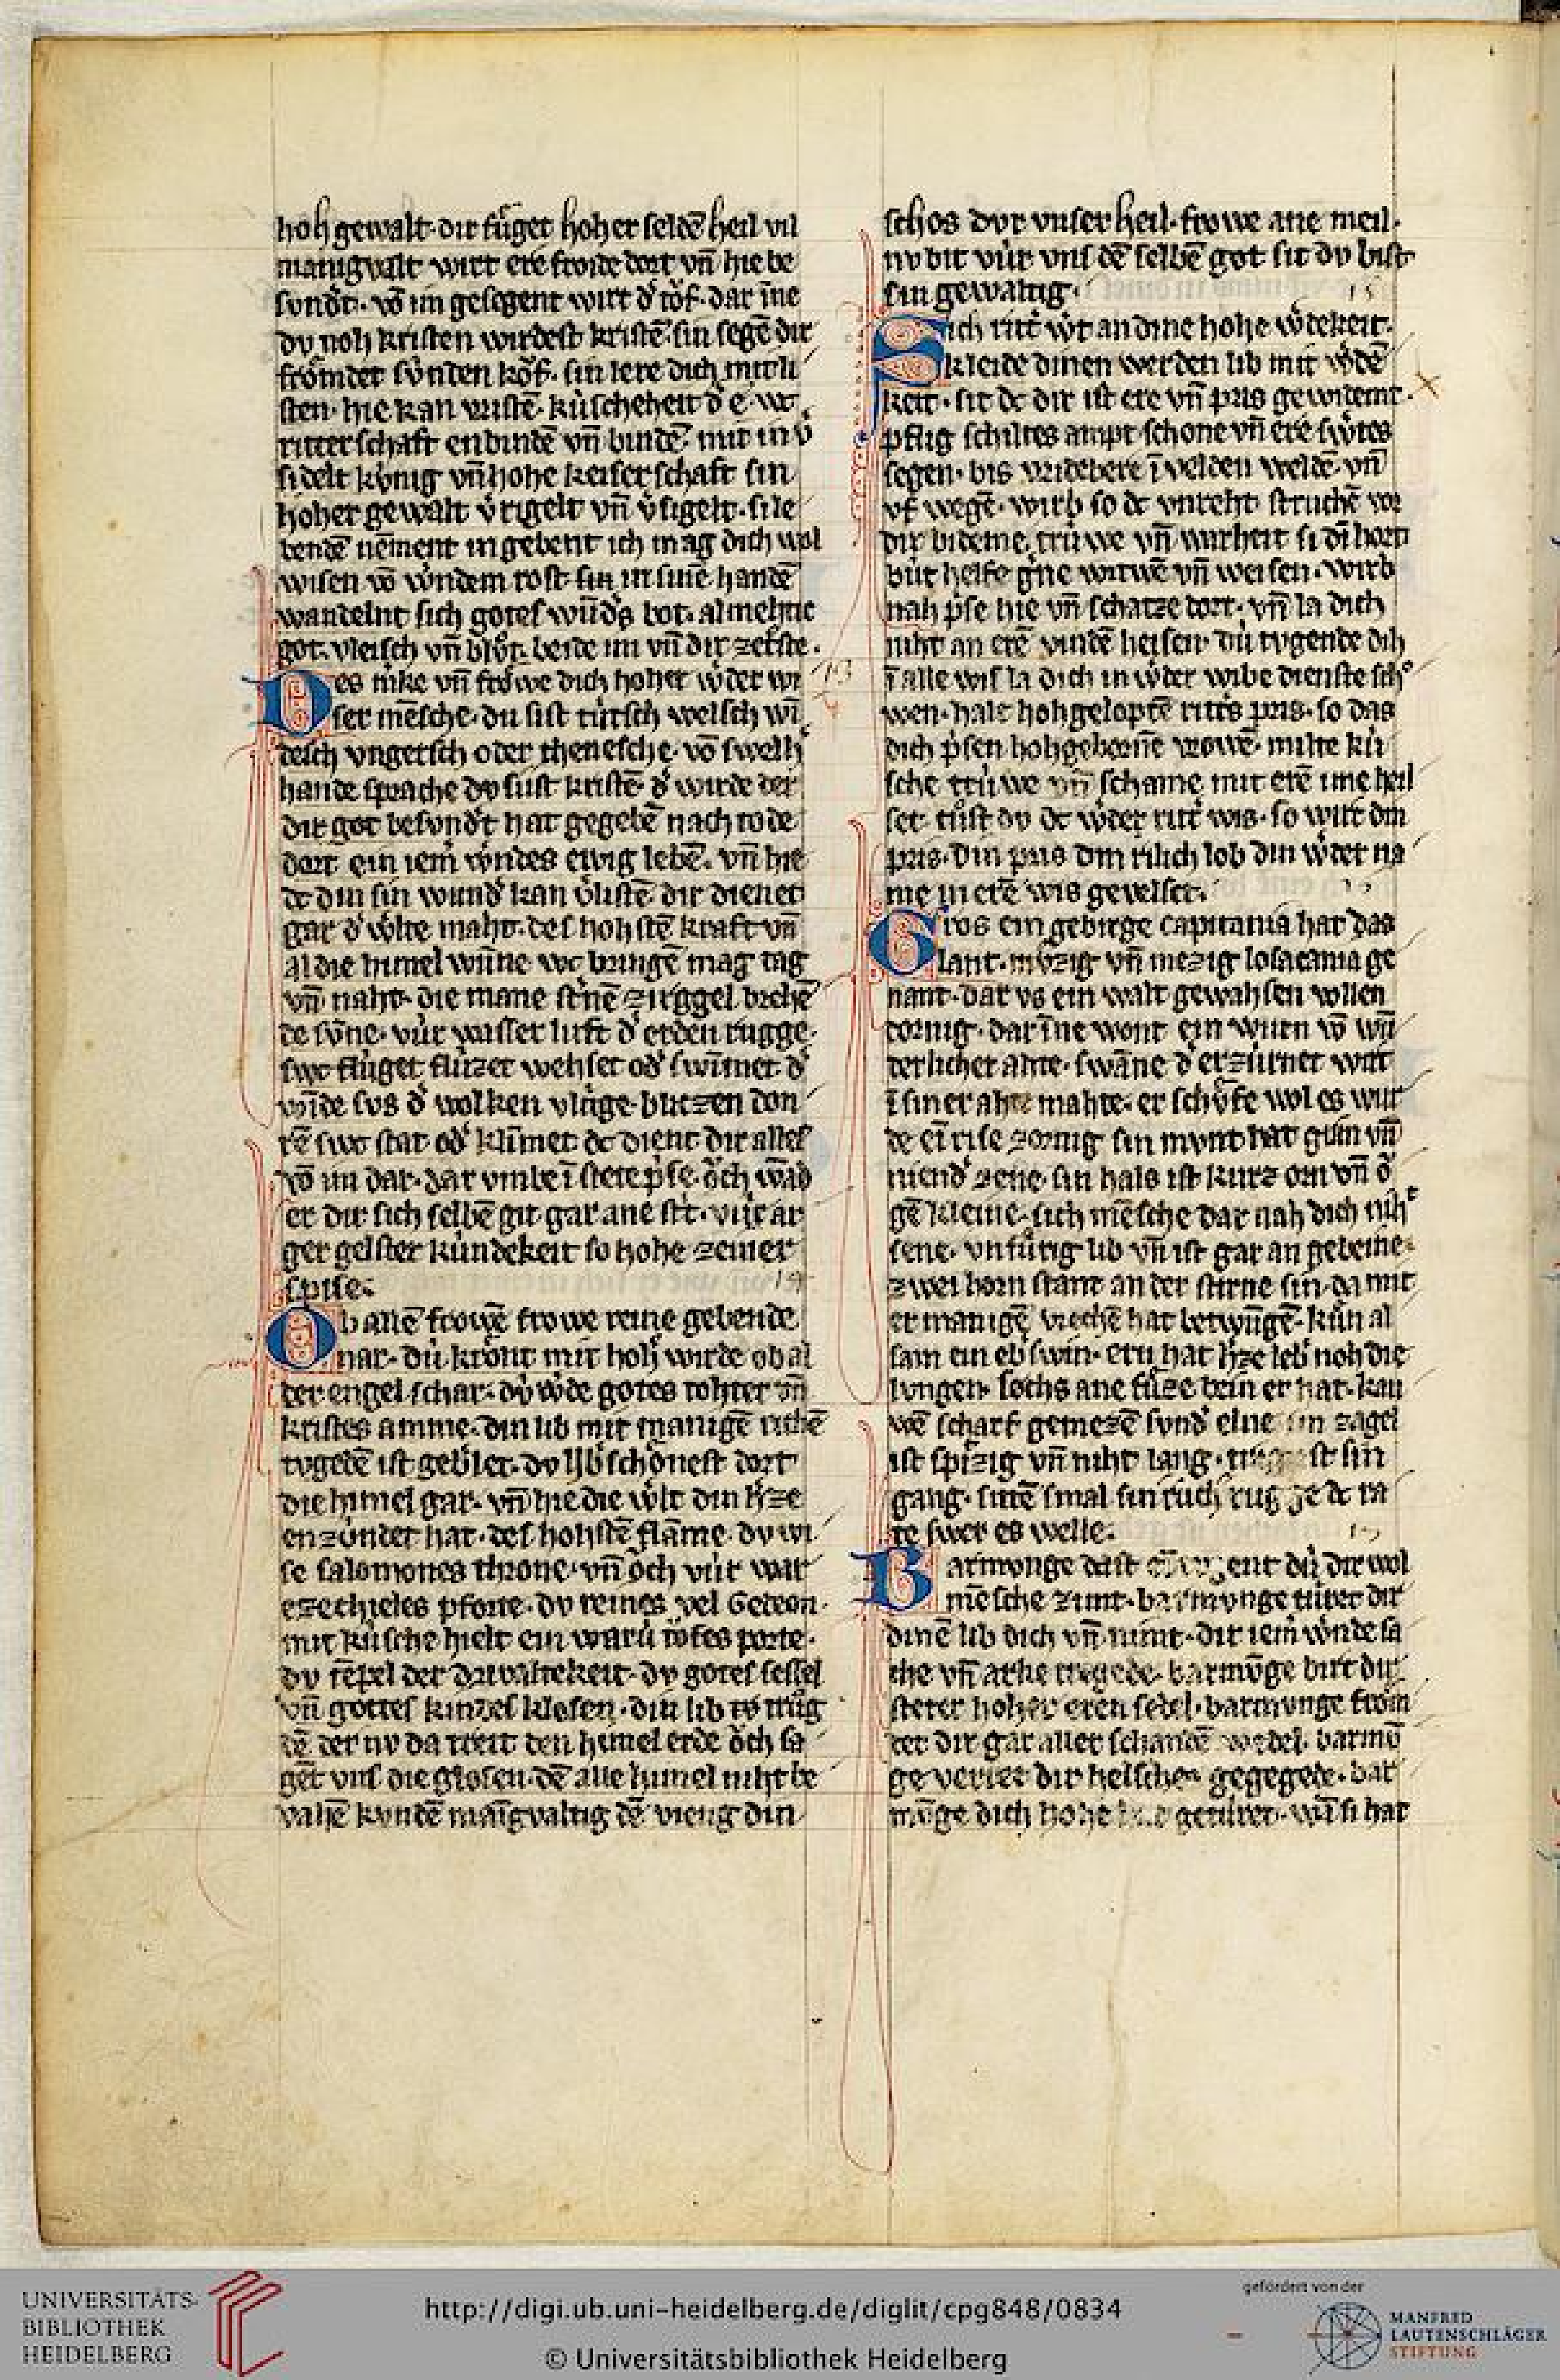 hoh gewalt· dir fuͤget hoher seldē heil vil
manigvalt wirt ere froide dort vn̄ hie be
sundˢ· vō im gesegent wirt dˢ toͮf· dar īne
dv noh kristen wirdest kristē· sin segē dir
froͤmdet svnden koͮf· sin lere dich mit li
sten· hie kan vristē· kúscheheit dˢ e· wc
ritter schaft enbindē vn̄ bindē· mit in vˢ
sidelt kúnig vn̄ hohe keiser schaft sin
hoher gewalt vˢrigelt vn̄ vˢsigelt· si le
bendē nement in gebent ich mag dich wol
wisen vō wˢndem rost in sinē handē
wandelnt sich gotes wundˢs bot· almehtic
got· vleisch vn̄ bloͮt· beide im vn̄ dir ze
Des nike vn̄ froͤwe dich hoher wˢder wi
ser mēsche· du sist tútsch welsch wī
desch vngersch oder· vō swelh
hande sprache dv sust kristē· dˢ wirde der
dir got besvndˢt hat gegebē nach tode
dort ein iemˢ wˢndes ewig lebē· vn̄ hie
dc din sin wundˢ kan vˢlistē· dir dienet
gar dˢ wˢlte maht· des hohstē kraft vn̄
al die himel wūne wc bringē mag tag
vn̄ naht· die mane stˢnē zirggel brehē
de svne· vúr wasser luft dˢ erden rugge·
swc flúget flúzet wehset odˢ swīmet· dˢ
winde sus dˢ wolken vlúge· blitzen don
rē swc stat odˢ klīmet· dc dient dir alles
vō im dar· dar vmbe ī stete pˢse· oͮch
er dir sich selbē git gar ane· vúr ar
ger gelster kúndekeit so hohe zeiner
spise·
Ob allē frowē frowe reine gebende
nar· dú kront mit hohˢ wirde ob al
der engel schar· dv wˢde gotes tohter vn̄
kristes amme· din lib mit manigē richē
tvgēdē ist· dv schonest dort
die himel gar· vn̄ hie die wˢlt din hˢze
enzúndet hat· des hohstē flāme· dv wi
se salomones throne· vn̄ oͮch vúr war
ezechieles pforte· dv reines vel Gedeon·
mit kúsche hielt ein porte·
dv tēpel der drivaltekeit· dv gotes sessel
vn̄ gottes kinzel klosen· din lib trug
dē der nv da treit den himel erde oͮch sa
gēt vns die glosen· dē alle himel niht be
vahē kvndē maīgvaltig dē vieng din
13
14
schos dvr vnser heil· frowe ane meil·
nv bit vúr vns dē selbē got sit dv bist
sin gewaltig·
15
Sich rittˢ wˢt an dine hohe wˢdekeit·
kleide dinen werden lib mit wˢdē
keit· sit dc dir ist ere vn̄ pris gewidemt·
pflig schiltes ampt schone vn̄ ere swˢtes
segen· bis vridebere ī velden weldē· vn̄
vf wegē· wirb so dc vnreht struchē vor
dir bideme· trúwe vn̄ warheit si dī hort
bút helfe gˢne witwē vn̄ weisen· wirb
nah pˢse hie vn̄ schatze dort· vn̄ la dich
niht an erē vindē· dú tvgende dih
ī alle wis la dich in wˢder wibe dienste scho
wen· halt hohgeloptē rittˢs pris· so das
dich pˢsen hohgebornē vrowē· milte kú
sche trúwe vn̄ schame mit erē ime heil
set· tuͦst dv dc wˢder rittˢ wis· so wirt din
pris· din pris din rilich lob din wˢder na
me in erē wis gevelset·
Gros ein gebirge capitania hat das
lant· mvzig vn̄ mezig losacania ge
nant· dar vs ein walt gewahsen vollen
dornig· dar īne wont ein wurn vō wn̄
derlicher ahte· swāne dˢ erzúrnet wirt
ī siner ahte mahte· er schvfe wol es wur
de eī rise zornig· sin mvnt hat gum vn̄
niendˢ zene· sin hals ist kurz orn vn̄ oͮ
gē kleine· sich mēsche dar nah dich niht
sene· vnfúrig lib vn̄ ist gar an gebeine·
zwei horn stant an der stirne sin· da mit
er manigē vrechē hat betwūgē· kún al
sam ein ebˢswin· ern hat hˢze lebˢ noh die
lvngen· sechs ane fúze bein er hat· kau
wē scharf gemezē svndˢ elne sin zagel
ist spitzig vn̄ niht lang· ist sin
gang· sitē smal sin ruch rug dc ra
te swer es welle·
Barmvnge dast dú dir wol
mēsche zimt· barmvnge túret dir
dinē lib dich vn̄ nimt· dir iemˢ wˢnde sa
che vn̄ arke wegede· barmvnge birt dir
steter hoher eren sedel· barmvnge froͤm
det dir gar aller schandē wedel· barmvn
ge verret dir helschen gegegede· bar
mvnge dich hohe getúret· wā si hat
UNIVERSITÄTS-
BIBLIOTHEK
HEIDELBERG
http://digi.ub.uni-heidelberg.de/diglit/cpg848/0834
© Universitätsbibliothek Heidelberg
gefördert von der
MANFRED
LAUTENSCHLÄGER
STIFTUNG